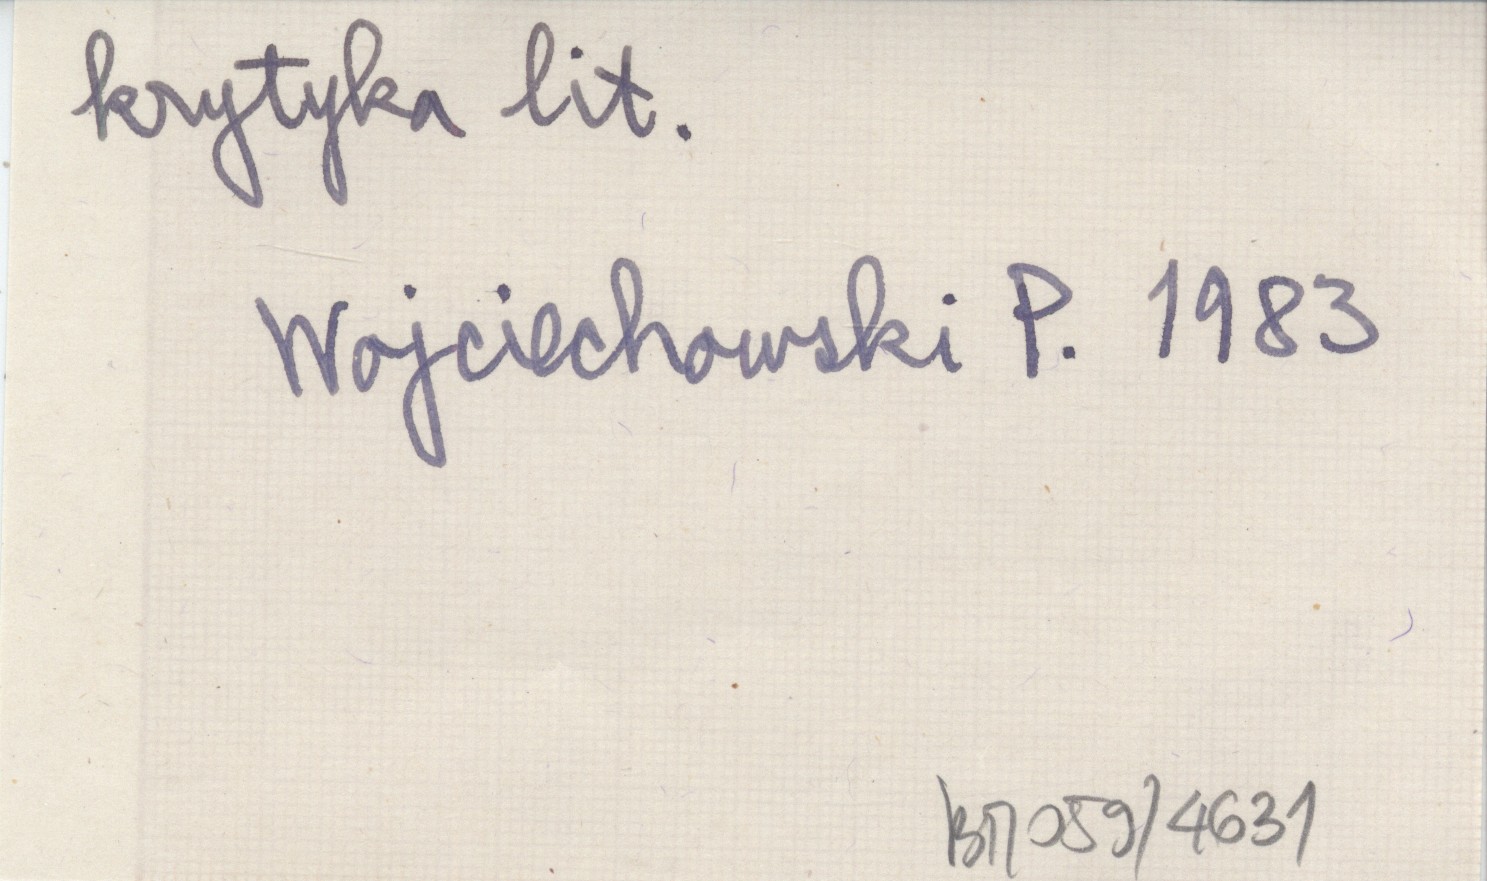 krytyka lit.
Wojciechowski P. 1983
/4631